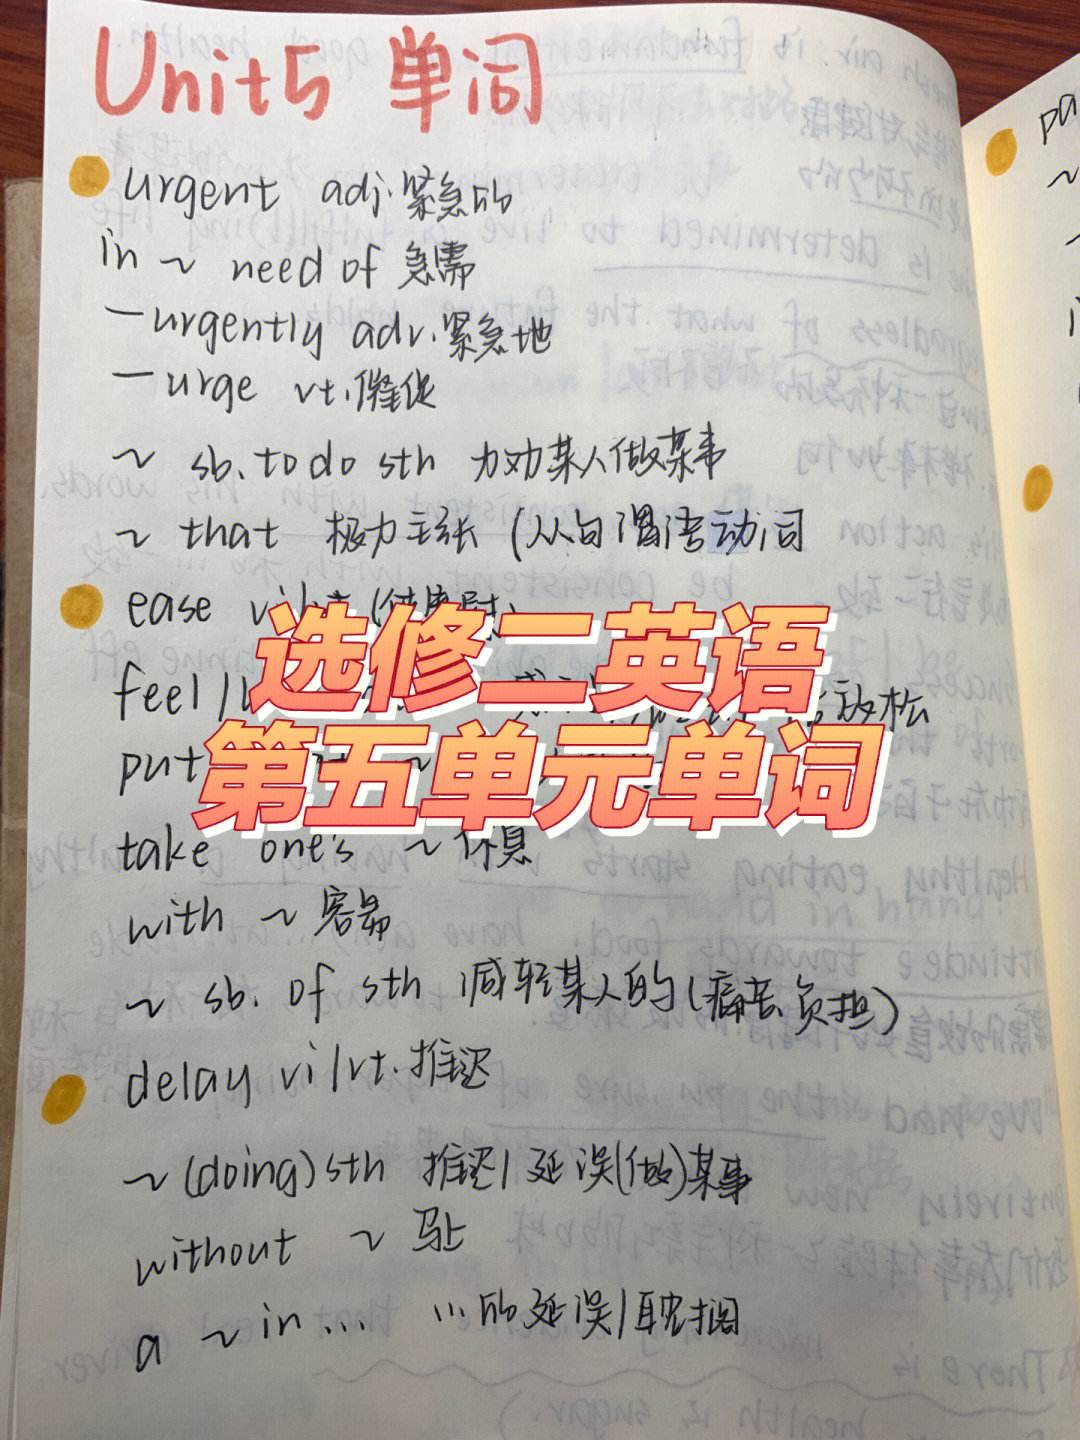 Unit5 单词
urgent adj.紧急的
in ~ need of 急需
—urgently adv.紧急地
—urge vt.催促
~ sb. to do sth 力劝某人做某事
~ that 极力主张 (从句谓语动词
ease vi/vt
选修二英语
feel 放松
第五单元单词
put ~
take one's ~ 休息
with ~ 容易
~ sb. of sth 减轻某人的(痛苦、负担)
delay vi/vt.推迟
~ (doing) sth 推迟/延误(做)某事
without ~ 马上
a ~ in... ...的延误/耽搁
pa
~